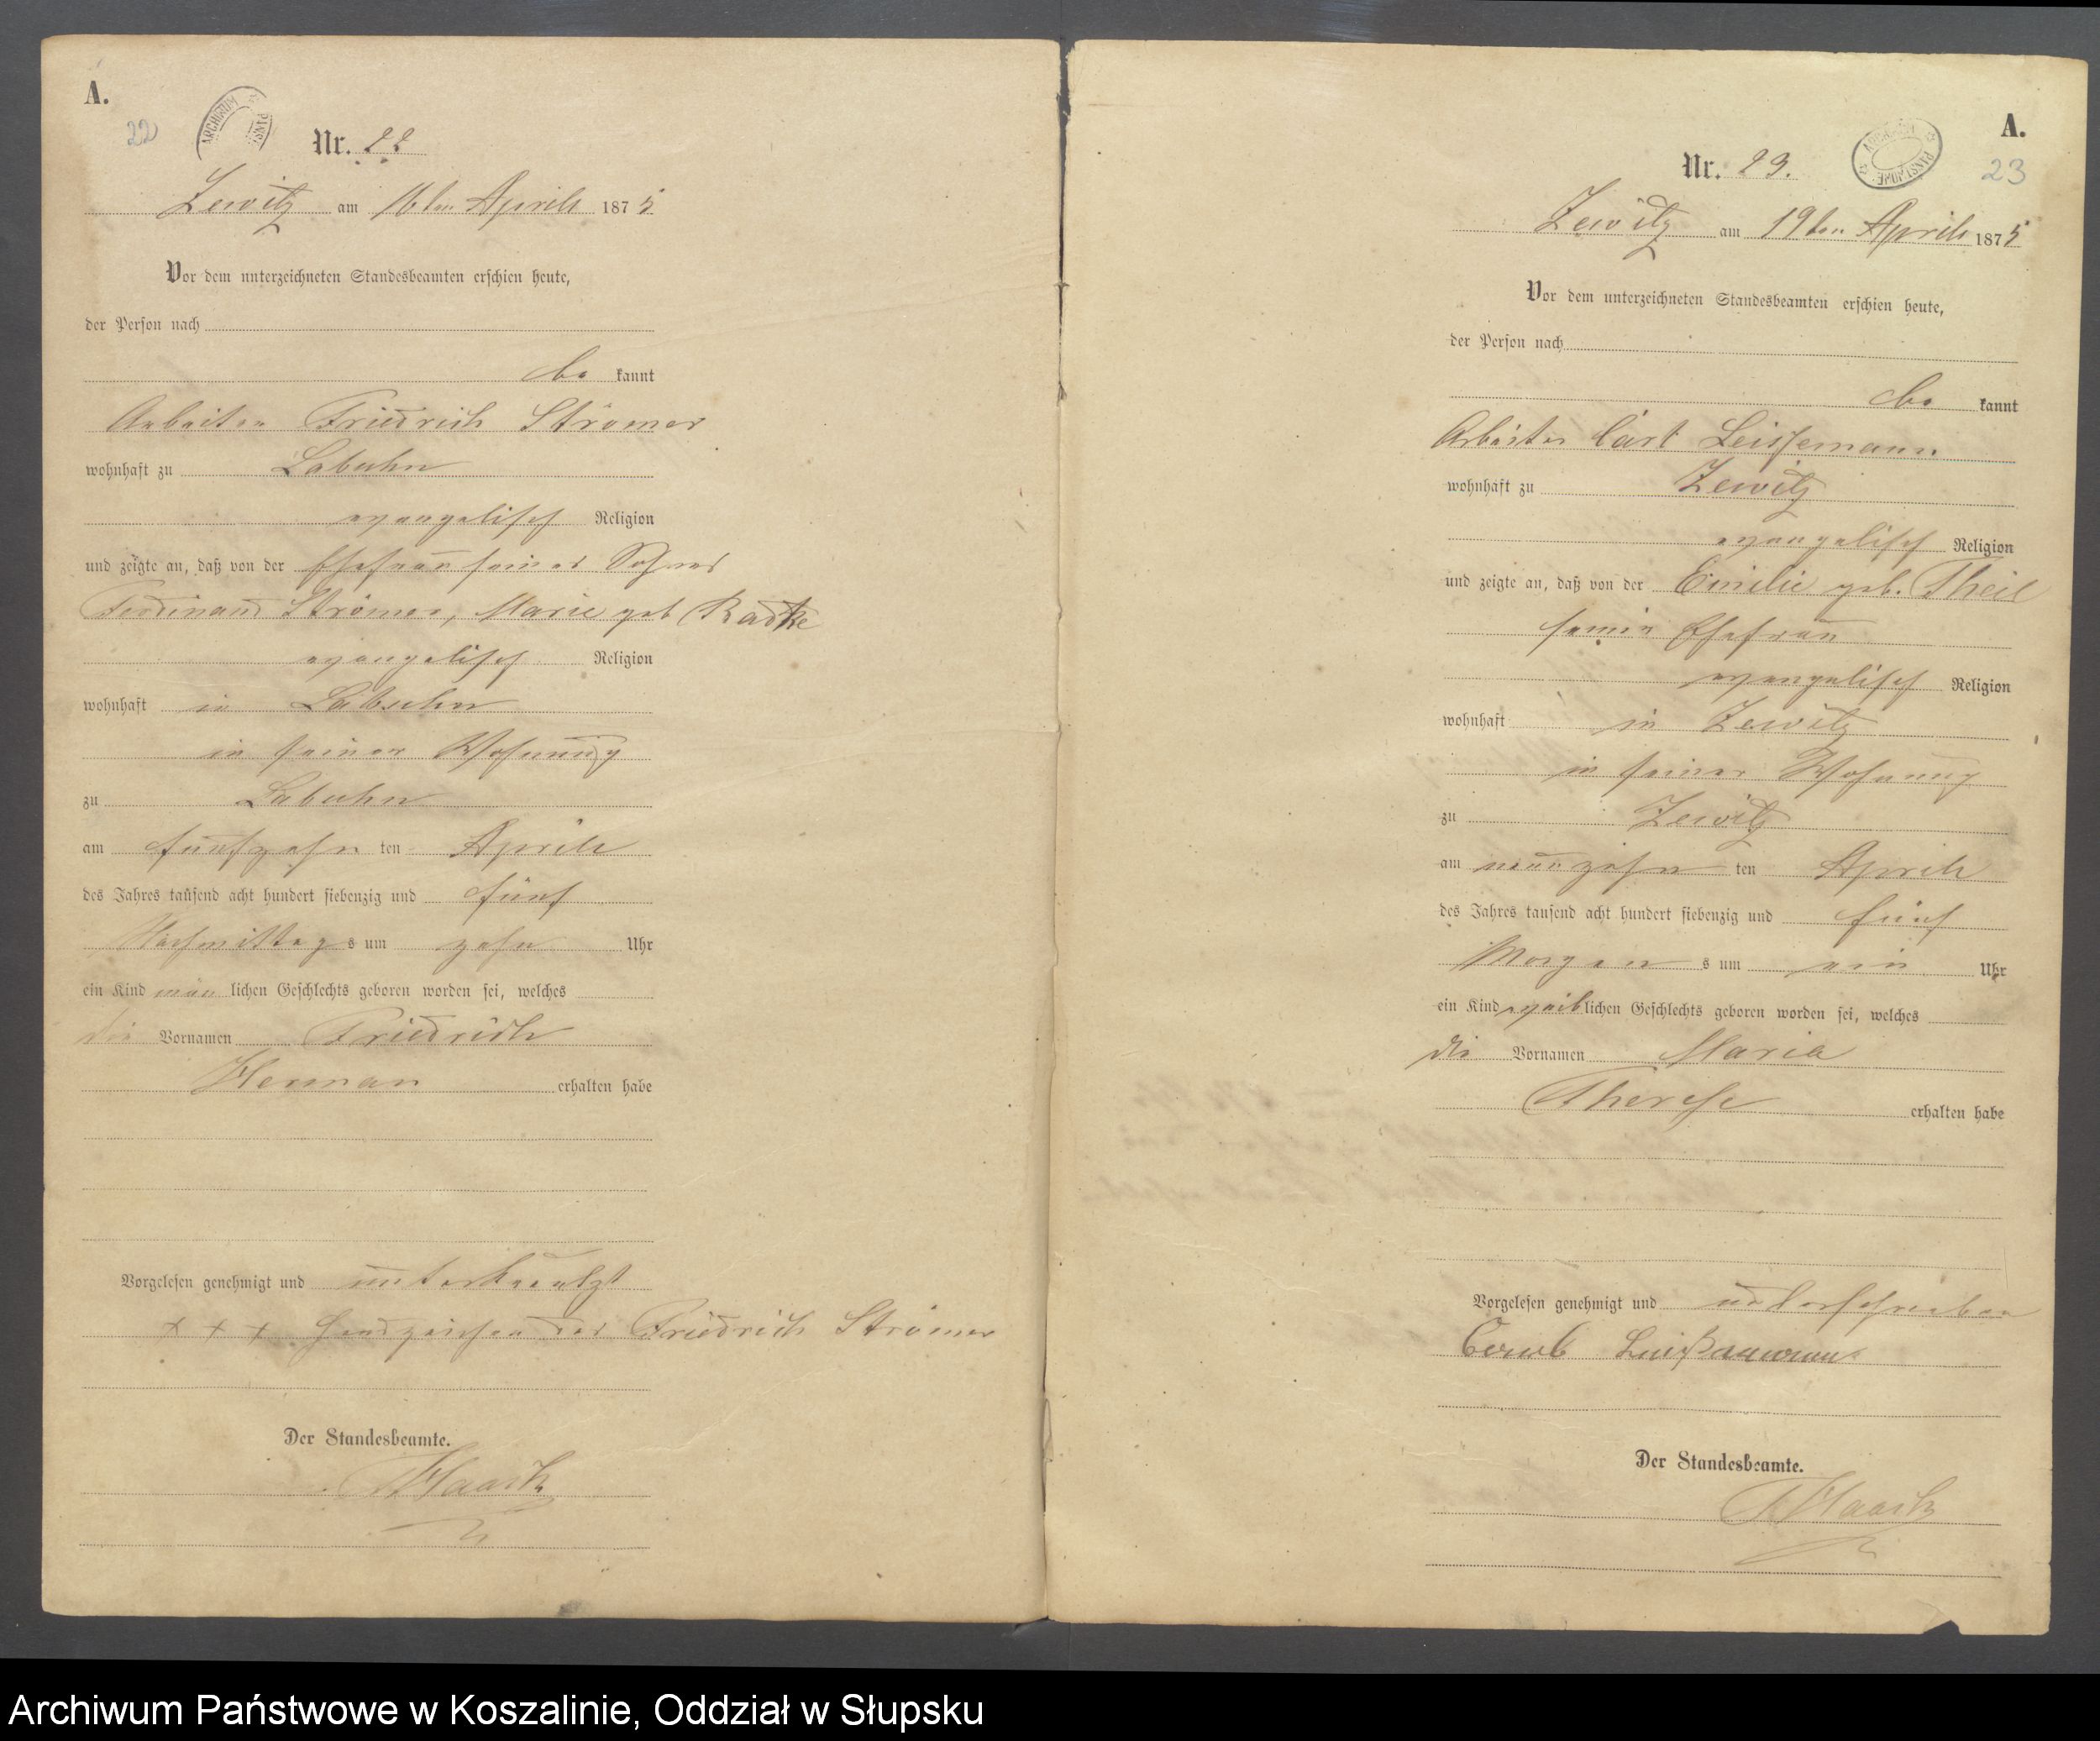 A.
22
ARCHIWUM PAŃST
Nr. 22
Zewitz am 16ten April 1875
Vor dem unterzeichneten Standesbeamten erschien heute,
der Person nach
be kannt
Arbeiter Friedrich Strömer
wohnhaft zu Labuhn
evangelisch Religion
und zeigte an, daß von der Ehefrau seines Sohnes
Ferdinand Strömer, Marie geb Radtke
evangelisch Religion
wohnhaft in Labuhn
in seiner Wohnung
zu Labuhn
am fünfzehn ten April
des Jahres tausend acht hundert siebenzig und fünf
Nachmittag s um zehn Uhr
ein Kind män lichen Geschlechts geboren worden sei, welches
die Vornamen Friedrich
Herman erhalten habe
Vorgelesen genehmigt und unterkreuzt
+ + + Handzeichen des Friedrich Strömer
Der Standesbeamte.
A.
23
ARCHIWUM PAŃSTWOWE
Nr. 23.
Zewitz am 19ten April 1875
Vor dem unterzeichneten Standesbeamten erschien heute,
der Person nach
be kannt
Arbeiter Carl Leissemann
wohnhaft zu Zewitz
evangelisch Religion
und zeigte an, daß von der Emilie geb. Theil
seine Ehefrau
evangelisch Religion
wohnhaft in Zewitz
in seiner Wohnung
zu Zewitz
am neunzehn ten April
des Jahres tausend acht hundert siebenzig und fünf
Morgen s um ein Uhr
ein Kind weiblichen Geschlechts geboren worden sei, welches
die Vornamen Maria
Therese erhalten habe
Vorgelesen genehmigt und unterschrieben
Carl Leißemann
Der Standesbeamte.
Archiwum Państwowe w Koszalinie, Oddział w Słupsku